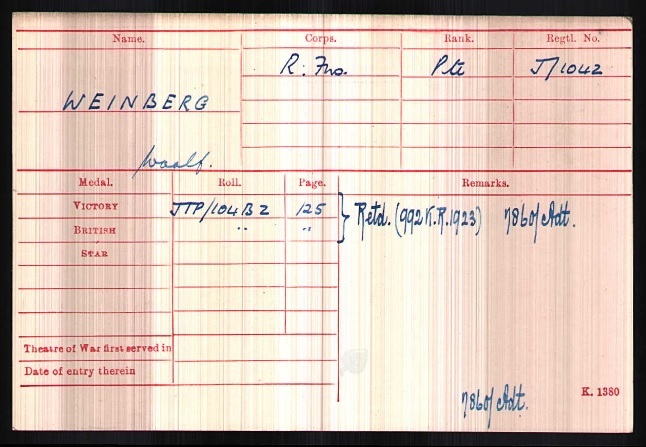 Name. Corps. Rank. Regtl. No.
R. Fus. Pte J/1042
WEINBERG
Woolf.
Medal. Roll. Page. Remarks.
VICTORY JTP/104B2 125 } Retd. (992 K.R. 1923) 7860/Adt.
BRITISH " "
STAR
Theatre of War first served in
Date of entry therein
K. 1380
7860/Adt.